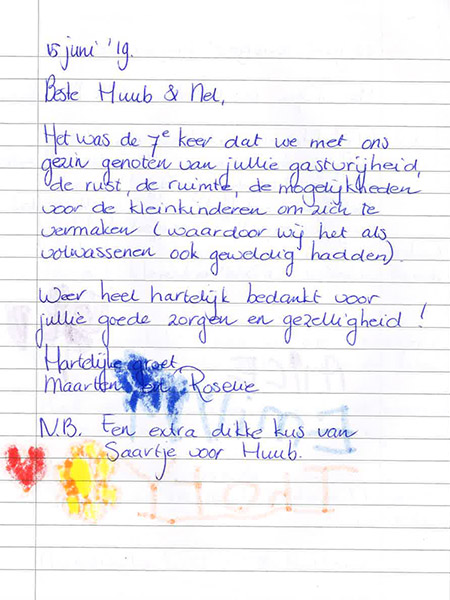 15 juni '19.
Beste Huub & Nel,
Het was de 7e keer dat we met ons
gezin genoten van jullie gastvrijheid,
de rust, de ruimte, de mogelijkheden
voor de kleinkinderen om zich te
vermaken (waardoor wij het als
volwassenen ook geweldig hadden).
Weer heel hartelijk bedankt voor
jullie goede zorgen en gezelligheid!
Hartelijke groet,
Maarten en Roselie
N.B. Een extra dikke kus van
Saartje voor Huub.